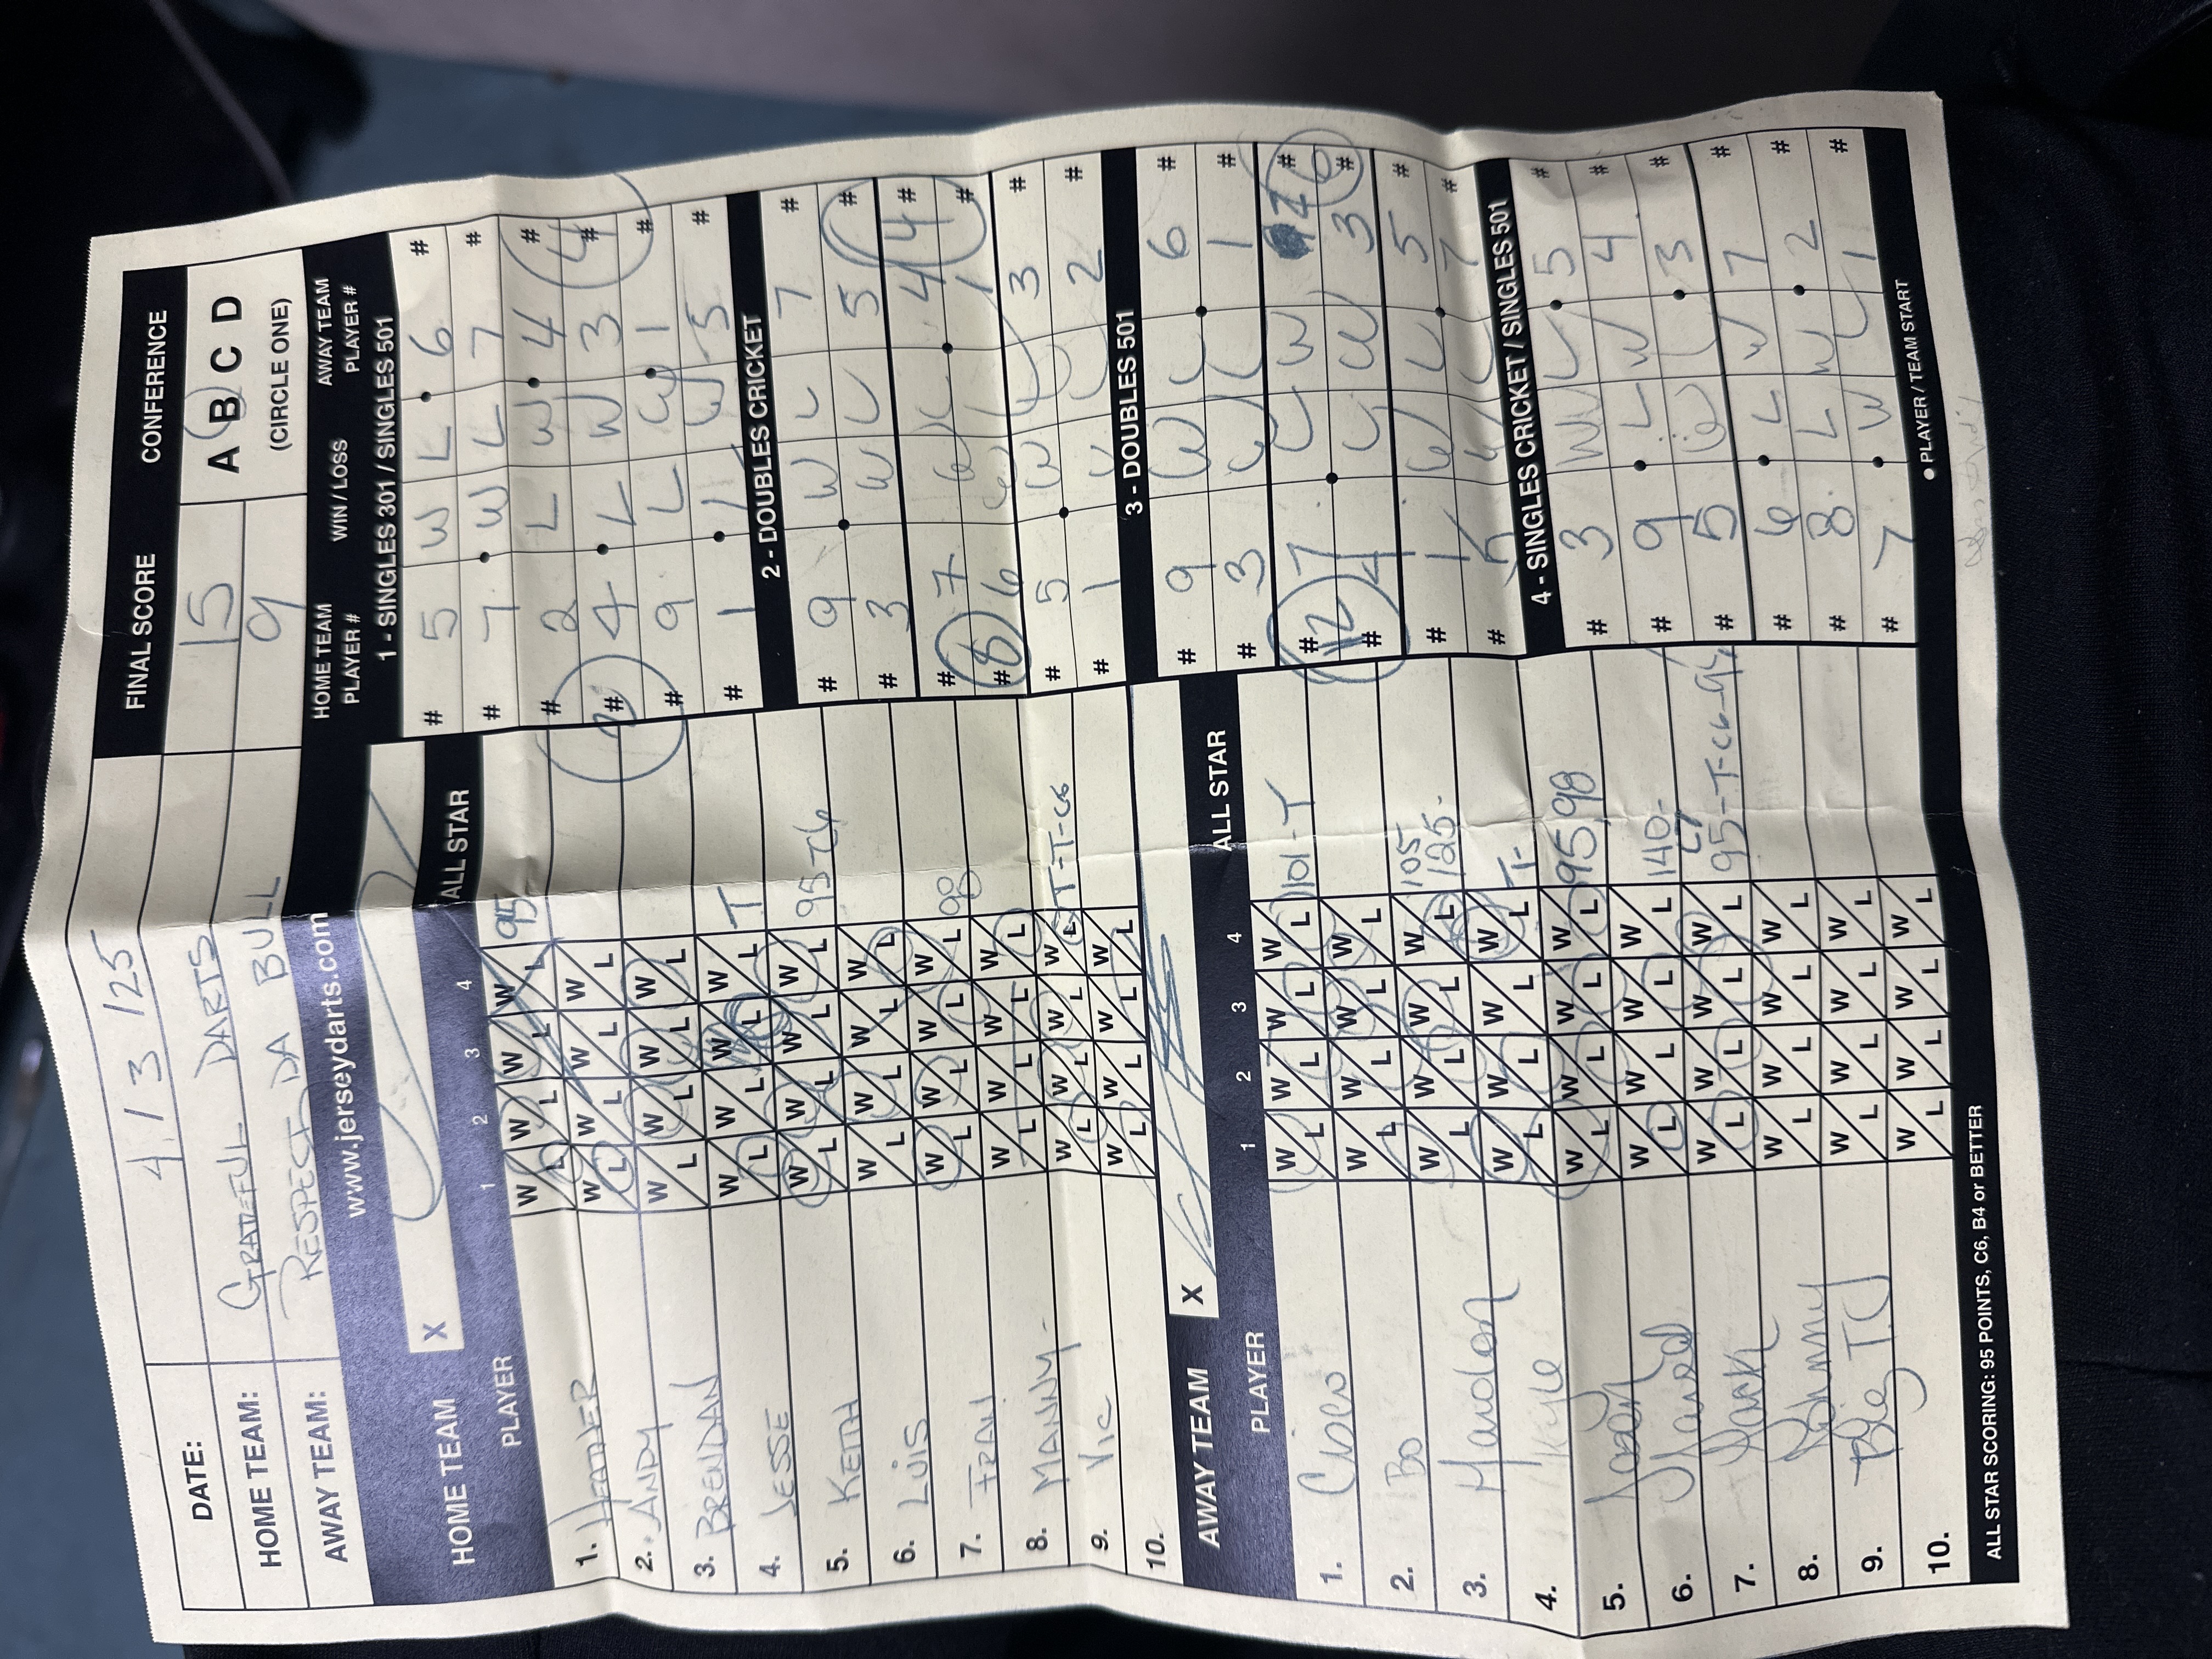 DATE: 4/3/25
FINAL SCORE
CONFERENCE
HOME TEAM: GRATEFUL DARTS
15
A B C D
AWAY TEAM: RESPECT DA BULL
9
(CIRCLE ONE)
www.jerseydarts.com
HOME TEAM PLAYER #
WIN / LOSS
AWAY TEAM PLAYER #
HOME TEAM
X
PLAYER
1 2 3 4
ALL STAR
1. HEATHER W L W L W L W L 95
2. ANDY W L W L W L W L
3. BRENDAN W L W L W L W L
4. JESSE W L W L W L W L T
5. KEITH W L W L W L W L
6. LUIS W L W L W L W L
7. FRAN W L W L W L W L 98
8. MANNY W L W L W L W L
9. VIC W L W L W L W L T-T-C6
10. W L W L W L W L
AWAY TEAM
X
PLAYER
1 2 3 4
ALL STAR
1. Cisco W L W L W L W L 101-T
2. Bo W L W L W L W L
3. W L W L W L W L 105 125
4. Kyle W L W L W L W L T-
5. W L W L W L W L 95 98
6. Jared W L W L W L W L 140-
7. W L W L W L W L 95-T-C6-
8. Johnny W L W L W L W L
9. Big TC W L W L W L W L
10. W L W L W L W L
ALL STAR SCORING: 95 POINTS, C6, B4 or BETTER
1 - SINGLES 301 / SINGLES 501
# 5 W L 6 #
# 7 W L 7 #
# 2 L W 4 #
# 4 L W 3 #
# 9 L W 1 #
# 1 L W 5 #
4
2 - DOUBLES CRICKET
# 9 W L 7 #
# 3 W L 5 #
# 7 W L 4 #
# 6 W L 1 #
# 5 W L 3 #
# 1 W L 2 #
8
4
3 - DOUBLES 501
# 9 W L 6 #
# 3 W L 1 #
# 7 L W 2 #
# 4 L W 3 #
# 1 W L 5 #
# 5 W L 7 #
12
6
4 - SINGLES CRICKET / SINGLES 501
# 3 W L 5 #
# 9 L W 4 #
# 5 W L 3 #
# 6 L W 7 #
# 8 L W 2 #
# 7 W L 1 #
● PLAYER / TEAM START